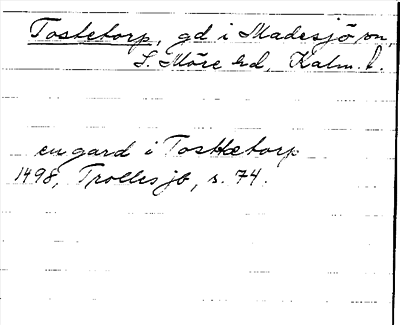 Tostetorp, gd i Madesjö sn,
S. Möre hd, Kalm. l.
en gard i Tosttetorp
1498, Trolles jb, s. 74.